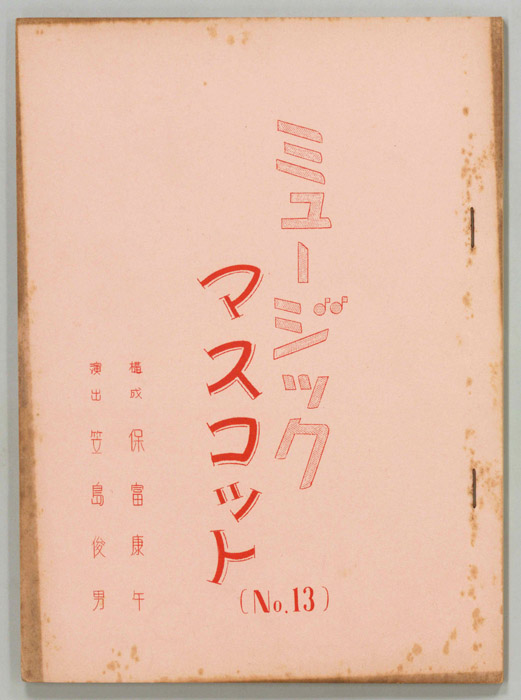 ミュージック
マスコット
(No.13)
構成 保富康午
演出 笠島俊男